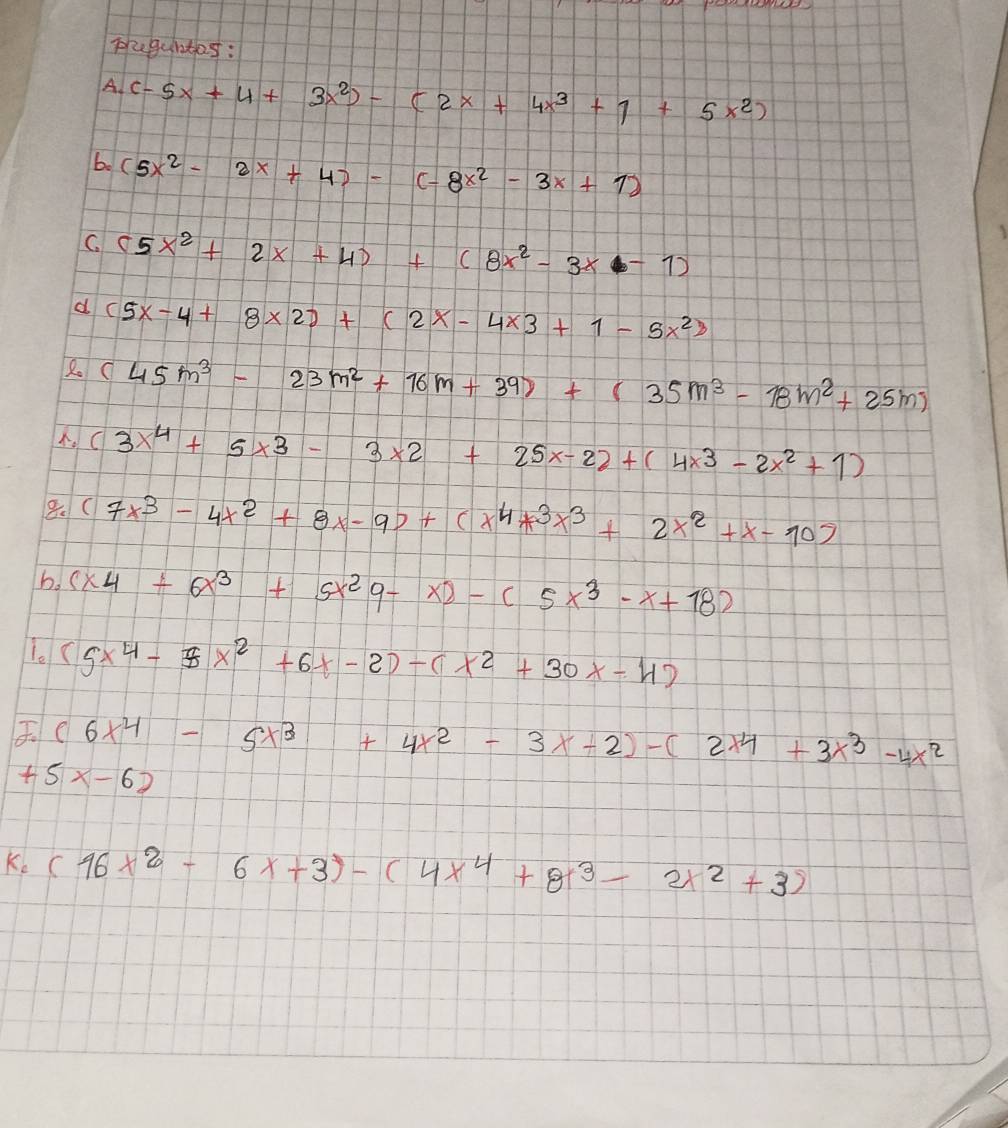 preguntas:
A. (-5x + 4 + 3x²) - (2x + 4x³ + 1 + 5x²)
b. (5x² - 2x + 4) - (-8x² - 3x + 1)
c. (5x² + 2x + 4) + (8x² - 3x - 1)
d (5x-4+ 8x2) + (2x - 4x3 + 1 - 5x²)
e. (45m³ - 23m² + 16m + 39) + (35m³ - 18m² + 25m)
(3x⁴ + 5x3 - 3x2 + 25x-2) + (4x³ - 2x² + 1)
g. (7x³ - 4x² + 8x-9) + (x⁴+3x³ + 2x² +x- 10)
h. (x4 + 6x³ + 5x²9- x) - (5x³ -x+18)
i. (5x⁴ - 5x² +6x-2) - (x² + 30x - 4)
J. (6x⁴ - 5x³ + 4x² - 3x+2) - (2x4 + 3x³ -4x²
+5x-6)
K. (16x² - 6x+3) - (4x⁴ + 8x³ - 2x² + 3)